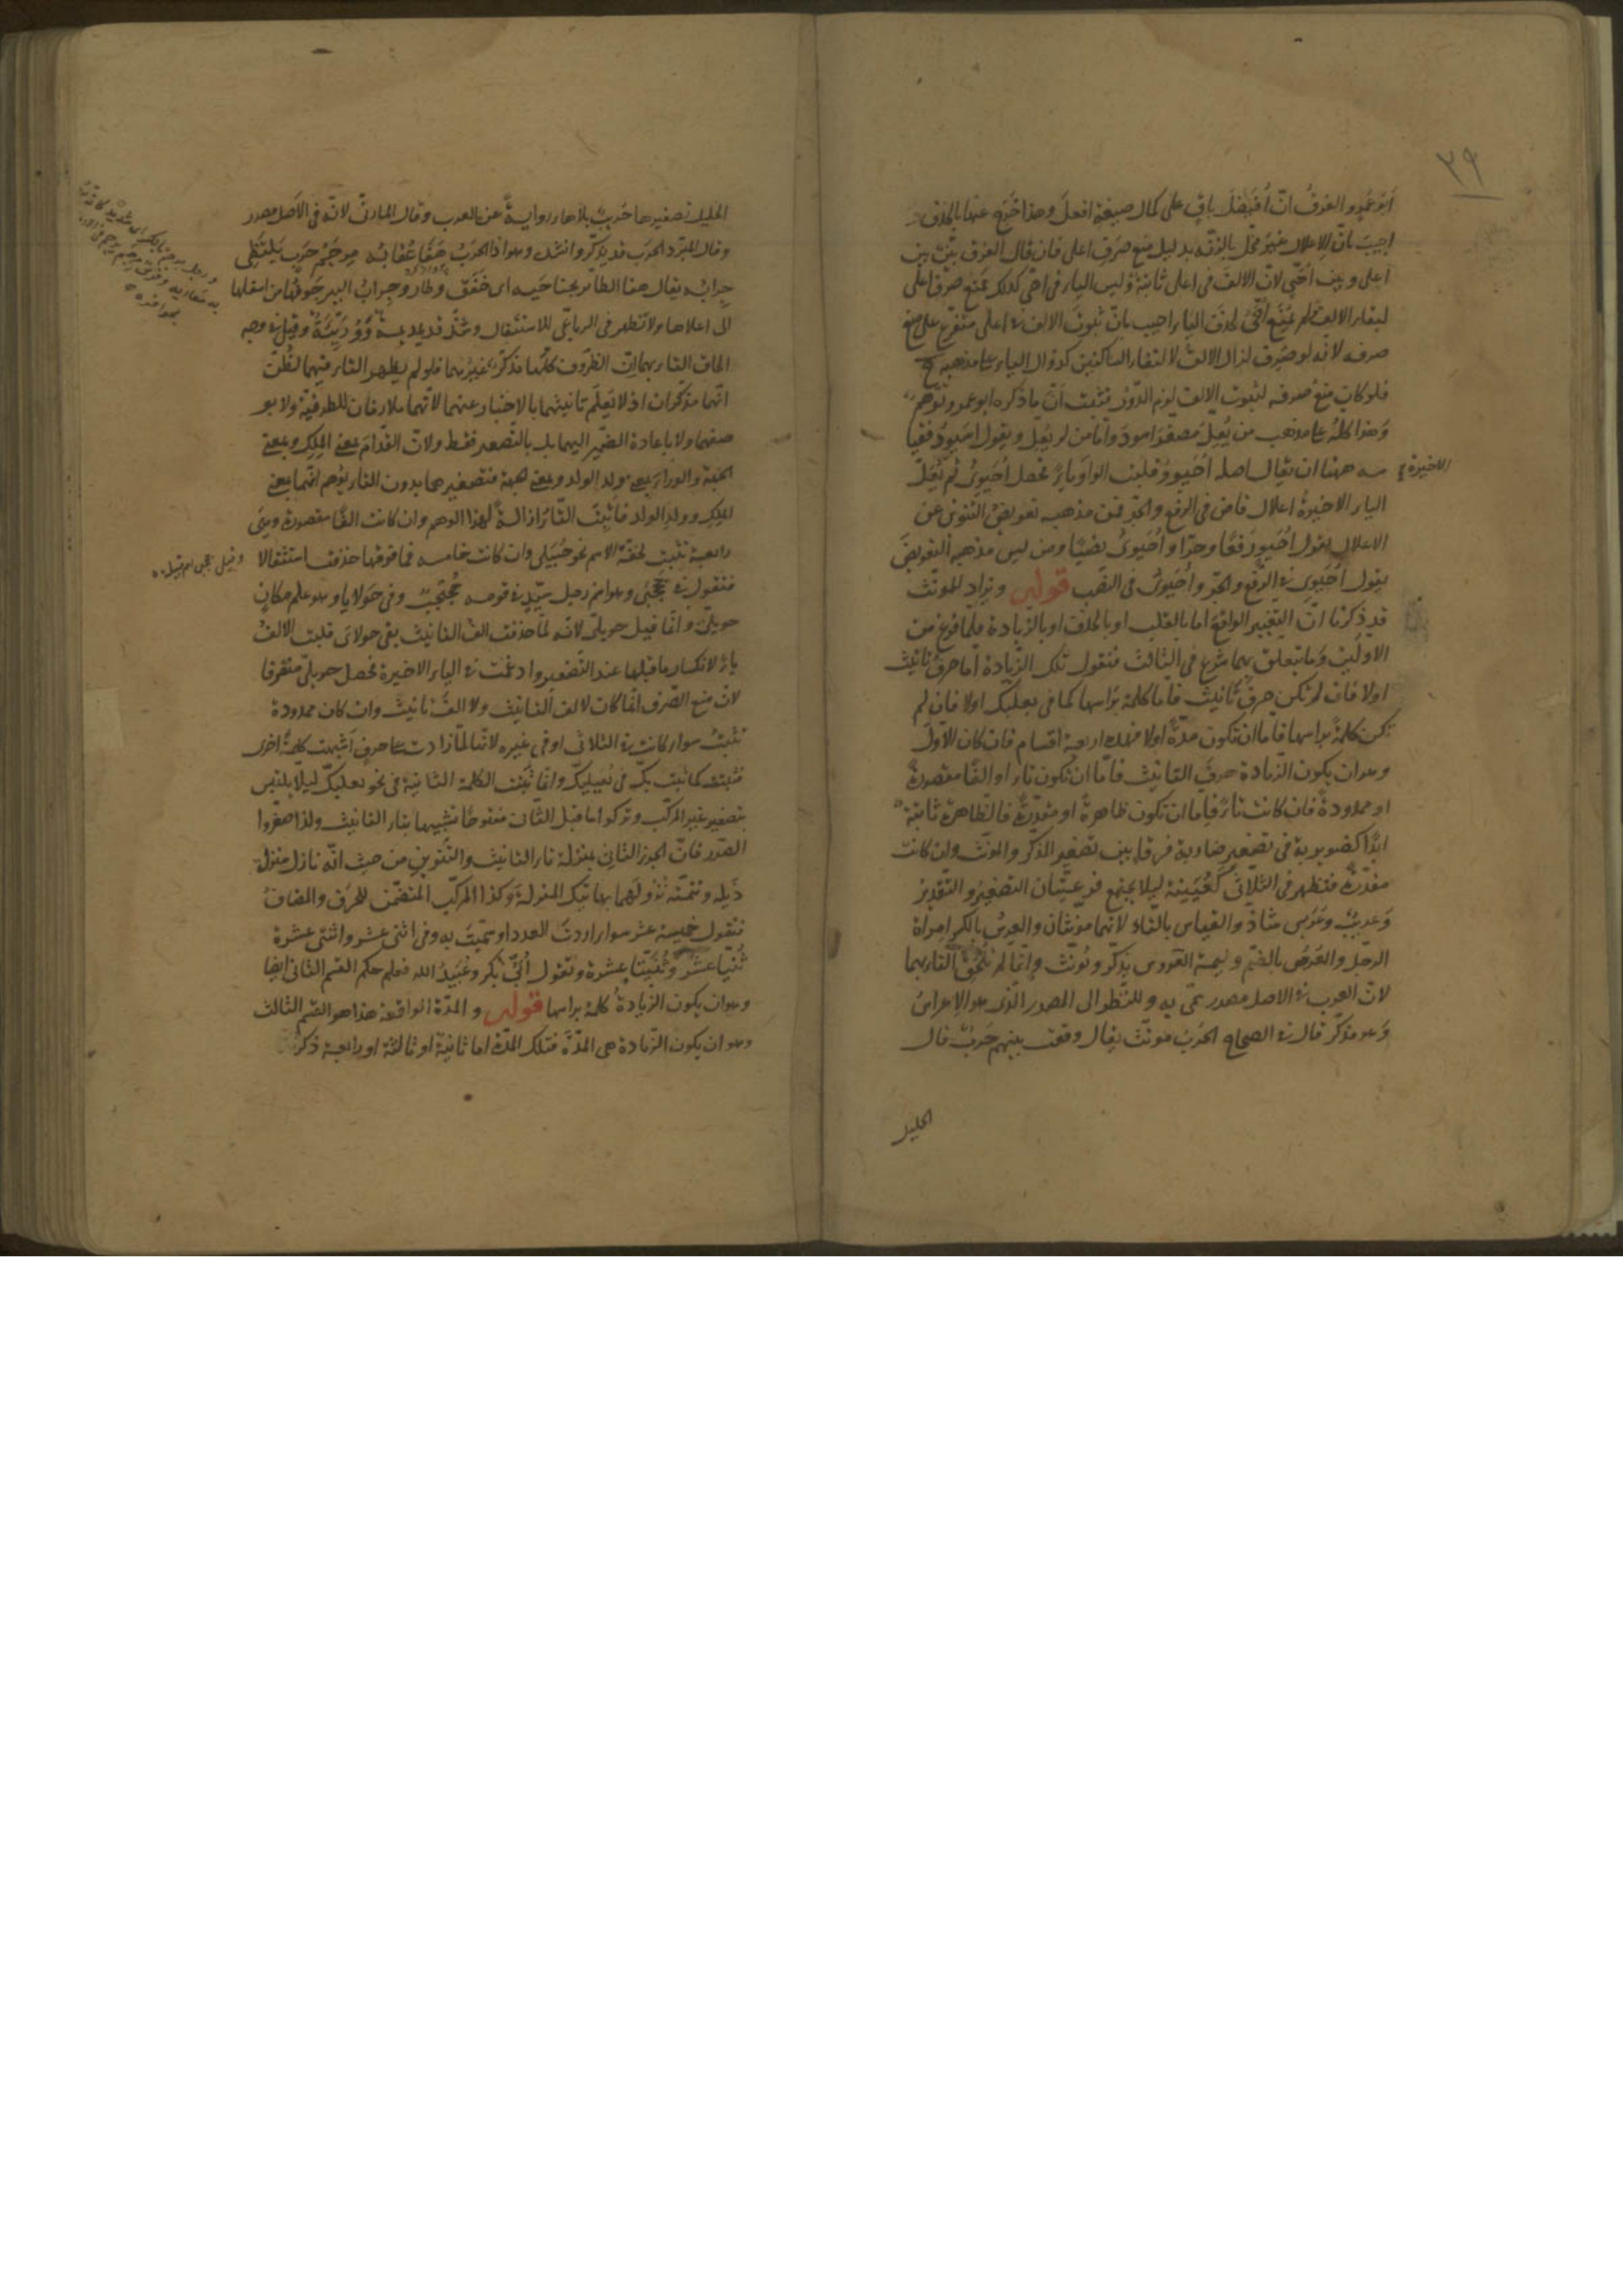 ٢٩
ابو عمرو الفرق ان افيضل باق على كمال صيغة افعل وهذا خرج عنها بالحذف
اجيب بان الاعلال غير مخل بالزنة بدليل منع صرف اعلى فان قال الفرق بيّن بين
اعلى وبين احيّ لان الالف في اعلى ثابتة وليس الياء في احيّ كذلك فمنع صرف اعلى
لبقاء الالف ولم يمنع احيّ لحذف الياء اجيب بان ثبوت الالف في اعلى متفرع على منع
صرفه لانه لو صرف لزال الالف لالتقاء الساكنين كزوال الياء على مذهبه
فلو كان منع صرفه لثبوت الالف لزم الدور فثبت ان ما ذكره ابو عمرو توهم
وهذا كله على مذهب من يُعلّ مصغر اسود واما من لم يعل ويقول اسيود فقياسه
ههنا ان يقال اصله احيوو قلبت الواو ياء فحصل احيوي ثم تُعلّ
الاخيرة
الياء الاخيرة اعلال قاض في الرفع والجر فمن مذهبه تعويض التنوين عن
الاعلال يقول احيوٍ رفعا وجرا واحيوي نصبا ومن ليس مذهبه التعويض
يقول احيوي في الرفع والجر واحيوي في النصب قوله ويزاد للمونث
قد ذكرنا ان التغيير الواقع اما بالقلب او بالحذف او بالزيادة فلما فرغ من
الاولين وما يتعلق بهما شرع في الثالث فنقول تلك الزيادة اما حرف تانيث
اولا فان لم تكن حرف تانيث فاما كلمة براسها كما في بعلبك اولا فان لم
تكن كلمة براسها فاما ان تكون مدة اولا فهذه اربعة اقسام فان كان الاول
وهو ان يكون الزيادة حرف التانيث فاما ان تكون تاء او الفا مقصورة
او ممدودة فان كانت تاء فاما ان تكون ظاهرة او مقدرة فالظاهرة ثابتة
ابدا كضويربة في تصغير ضاربة فرقا بين تصغير المذكر والمونث وان كانت
مقدرة فتظهر في الثلاثي كعيينة ليلا يجتمع فرعيتان التصغير والتقدير
وعريب وعريس شاذ والقياس بالتاء لانهما مونثان والعرس بالكسر امراة
الرجل والعرس بالضم وليمة العروس يذكر ويونث وانما لم تلحق التاء بهما
لان العرب في الاصل مصدر سمي به وللنظر الى المصدر الذي هو الاعراس
وهو مذكر قال في الصحاح الحرب مونث يقال وقعت بينهم حرب قال
الخليل
الخليل تصغيرها حريب بلا هاء رواية عن العرب وقال المازني لانه في الاصل مصدر
وقال المبرد الحرب قد يذكر وانشد وهو اذا الحرب هفا عقابه مرجم حرب تلتظي
حرابه يقال هفا الطائر بجناحيه اي خفق وطار وجراب البير جوفها من اسفلها
الى اعلاها ولا تظهر في الرباعي للاستثقال وشذ قديديمة ووريئة وقيل في وجه
الحاق التاء بهما ان الظروف كلها مذكر غيرهما فلو لم يظهر التاء فيهما لظن
انهما مذكران اذ لا يعلم تانيثهما بالاخبار عنهما لانهما ملازمان للظرفية ولا بو
صفهما ولا باعادة الضمير اليهما بل بالتصغير فقط ولان القدام بمعنى الملك وبمعنى
الجهة والوراء بمعنى ولد الولد وبمعنى الجهة فتصغيرهما بدون التاء يوهم انهما بمعنى
الملك وولد الولد فاثبت التاء ازالة لهذا الوهم وان كانت الفا مقصورة وهي
رابعة تثبت لخفة الاسم نحو حبيلى وان كانت خامسة فما فوقها حذفت استثقالا
فتقول في جحجبى وهو اسم رجل سيد في قومه جحيجب وفي حولايا وهو علم مكان
حويلي وانما قيل حويلي لانه لما حذفت الف التانيث بقي حولاي قلبت الالف
ياء لانكسار ما قبلها عند التصغير وادغمت في الياء الاخيرة فحصل حويلي منصرفا
لان منع الصرف انما كان لالف التانيث ولا الف تانيث وان كان ممدودة
تثبت سواء كانت في الثلاثي او في غيره لانها لما زادت على حرف اشبهت كلمة اخرى
فثبتت كما ثبت بك في بعيلبك وانما تثبت الكلمة الثانية في نحو بعلبك ليلا يلتبس
بتصغير غير المركب وتركوا ما قبل الثاني مفتوحا تشبيها بتاء التانيث ولذا صغروا
الصدر فان الجزء الثاني بمنزلة تاء التانيث والتنوين من حيث انه نازل منزلة
ذيله وتتمته نزولهما بهاتيك المنزلة وكذا المركب المتضمن للحرف والمضاف
فتقول خميسة عشر سواء اردت العدد او سميت به وفي اثني عشر واثنتي عشرة
ثنيا عشر وثنيتا عشرة وتقول ابي بكر وعبيد الله فعلم حكم القسم الثاني ايضا
وهو ان يكون الزيادة كلمة براسها قوله والمدة الواقعة هذا هو القسم الثالث
وهو ان يكون الزيادة هي المدة فتلك المدة اما ثانية او ثالثة او رابعة ذكر
ورجل مرجم بالكسر اي شديد كانه يرجم
به معاديه
وقيل جحجبى اسم قبيلة